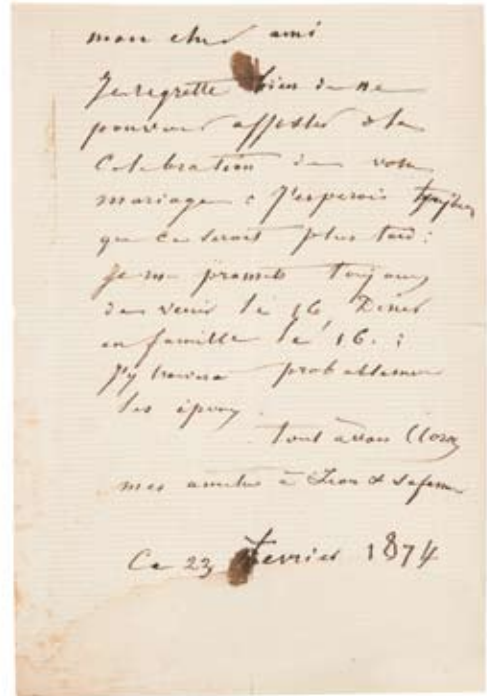 mon cher ami
Je regrette bien de ne
pouvoir assister à la
Celebration de votre
mariage : J'esperois toujours
que ce serait plus tard :
Je me promets toujours
de venir le 16 Diner
en famille le 16. :
J'y trouverai probablement
les époux.
tout à vous C. Corot
mes amitiés à Léon & sa femme
Ce 23 fevrier 1874